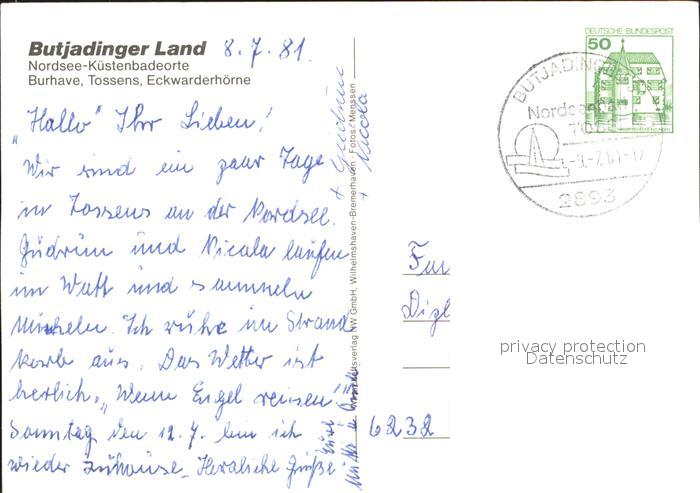 Butjadinger Land 8.7.81.
Nordsee-Küstenbadeorte
Burhave, Tossens, Eckwarderhörne
"Hallo" Ihr Lieben!
Wir sind ein paar Tage
in Tossens an der Nordsee.
Gudrun und Nicola laufen
im Watt und sammeln
Muscheln. Ich ruhe im Strand
korb aus. Das Wetter ist
herlich. "Wenn Engel reisen!"
Sonntag den 12.7. bin ich
wieder zuhause. Herzliche Grüße
Eure
+ Gudrun
+ Nicola
NW GmbH, Wilhelmshaven-Bremerhaven · Fotos: Menssen
DEUTSCHE BUNDESPOST
50
BUTJADINGEN
-9.-7.81-17
2893
Dipl
6232
privacy protection
Datenschutz